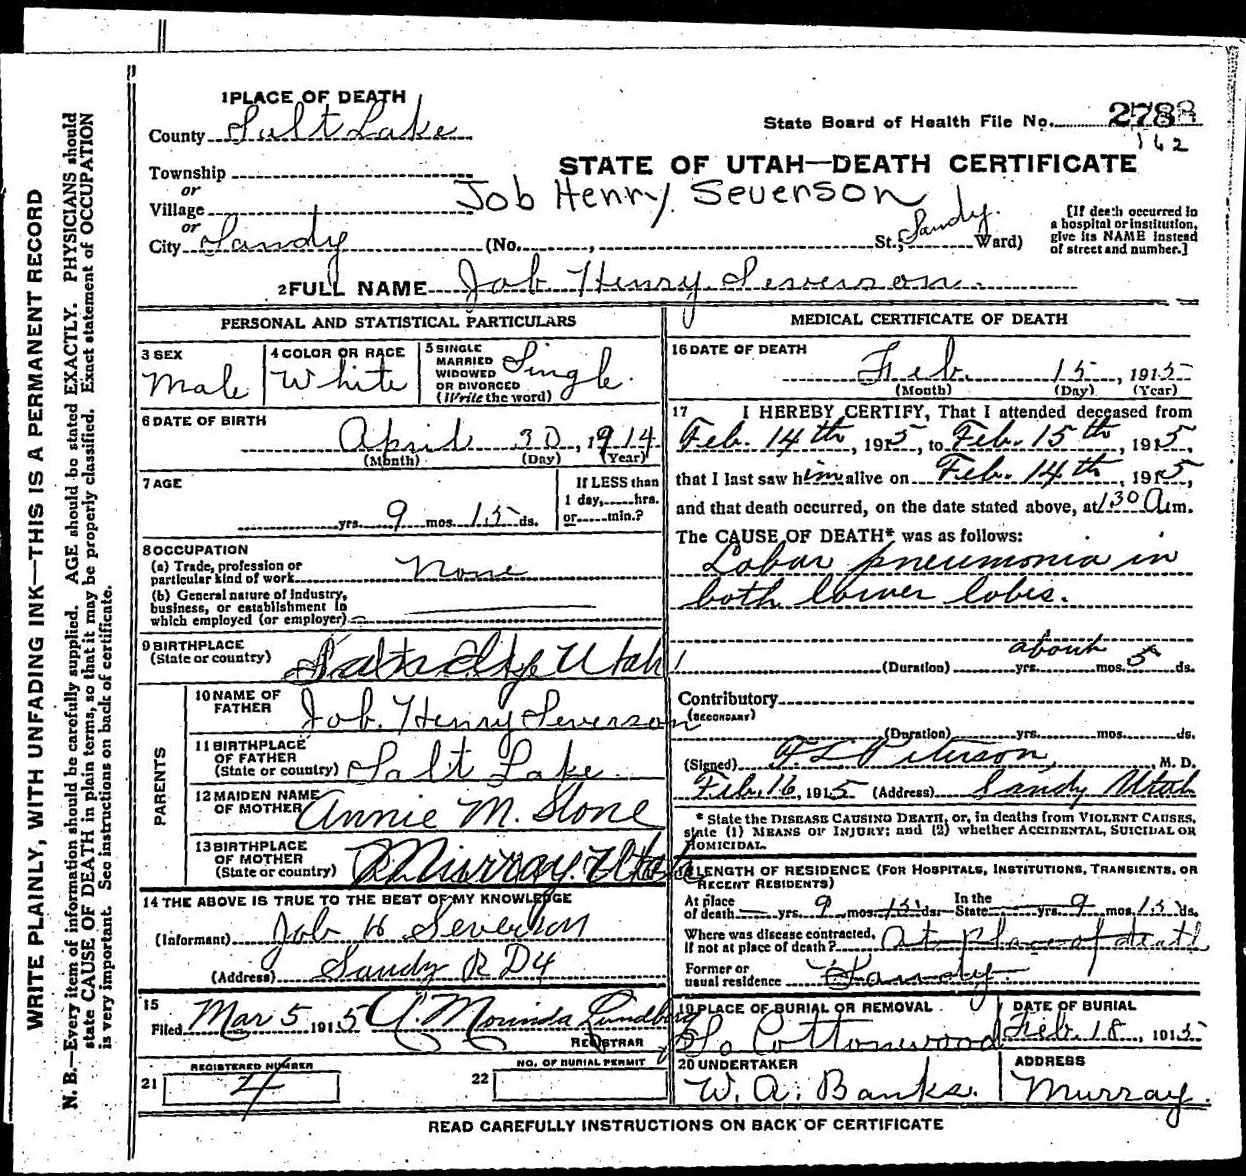 1 PLACE OF DEATH
County Salt Lake
State Board of Health File No. 2788
162
Township
STATE OF UTAH—DEATH CERTIFICATE
or
Job Henry Severson
Village
or
City Sandy (No. , St.; Sandy. Ward)
[If death occurred in
a hospital or institution,
give its NAME instead
of street and number.]
2 FULL NAME Job Henry Severson.
PERSONAL AND STATISTICAL PARTICULARS
3 SEX
Male
4 COLOR OR RACE
White
5 SINGLE
MARRIED
WIDOWED
OR DIVORCED
(Write the word)
Single.
6 DATE OF BIRTH
April 30, 1914
(Month) (Day) (Year)
7 AGE
yrs. 9 mos. 15 ds.
If LESS than
1 day, hrs.
or min.?
8 OCCUPATION
(a) Trade, profession or
particular kind of work None
(b) General nature of industry,
business, or establishment in
which employed (or employer)
9 BIRTHPLACE
(State or country) Utah
PARENTS
10 NAME OF
FATHER Job. Henry Severson
11 BIRTHPLACE
OF FATHER
(State or country) Salt Lake
12 MAIDEN NAME
OF MOTHER Annie M. Stone
13 BIRTHPLACE
OF MOTHER
(State or country) Murray. Utah
14 THE ABOVE IS TRUE TO THE BEST OF MY KNOWLEDGE
(Informant) Job H Severson
(Address) Sandy R D 4
15
Filed Mar 5 1915 A. Morinda Lundberg
REGISTRAR
REGISTERED NUMBER
21 4
NO. OF BURIAL PERMIT
22
MEDICAL CERTIFICATE OF DEATH
16 DATE OF DEATH
Feb. 15, 1915
(Month) (Day) (Year)
17 I HEREBY CERTIFY, That I attended deceased from
Feb. 14th, 1915, to Feb. 15th, 1915,
that I last saw him alive on Feb. 14th, 1915,
and that death occurred, on the date stated above, at 1 30 A.m.
The CAUSE OF DEATH* was as follows:
Lobar pneumonia in
both lower lobes.
about
(Duration) yrs. mos. 5 ds.
Contributory
(SECONDARY)
(Duration) yrs. mos. ds.
(Signed) Peterson, M. D.
Feb. 16, 1915 (Address) Sandy Utah
* State the DISEASE CAUSING DEATH, or, in deaths from VIOLENT CAUSES,
state (1) MEANS OF INJURY; and (2) whether ACCIDENTAL, SUICIDAL OR
HOMICIDAL.
18 LENGTH OF RESIDENCE (FOR HOSPITALS, INSTITUTIONS, TRANSIENTS, OR
RECENT RESIDENTS)
At place
of death yrs. 9 mos. 15 ds.
In the
State yrs. 9 mos. 15 ds.
Where was disease contracted,
if not at place of death? At place of death
Former or
usual residence Sandy
19 PLACE OF BURIAL OR REMOVAL
So Cottonwood
DATE OF BURIAL
Feb. 18, 1915
20 UNDERTAKER
W. A. Banks.
ADDRESS
Murray.
READ CAREFULLY INSTRUCTIONS ON BACK OF CERTIFICATE
WRITE PLAINLY, WITH UNFADING INK—THIS IS A PERMANENT RECORD
N. B.—Every item of information should be carefully supplied. AGE should be stated EXACTLY. PHYSICIANS should
state CAUSE OF DEATH in plain terms, so that it may be properly classified. Exact statement of OCCUPATION
is very important. See instructions on back of certificate.